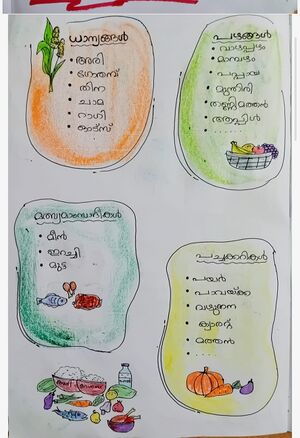 ധാന്യങ്ങൾ
• അരി
• ഗോതമ്പ്
• തിന
• ചാമ
• റാഗി
• ഓട്സ്
പഴങ്ങൾ
• വാഴപ്പഴം
• മാമ്പഴം
• പപ്പായ
• മുന്തിരി
• തണ്ണിമത്തൻ
• ആപ്പിൾ
• . . . . .
മത്സ്യമാംസാദികൾ
• മീൻ
• ഇറച്ചി
• മുട്ട
പച്ചക്കറികൾ
• പയർ
• പാവയ്ക്ക
• വഴുതന
• ക്യാരറ്റ്
• മത്തൻ
• . . . . .